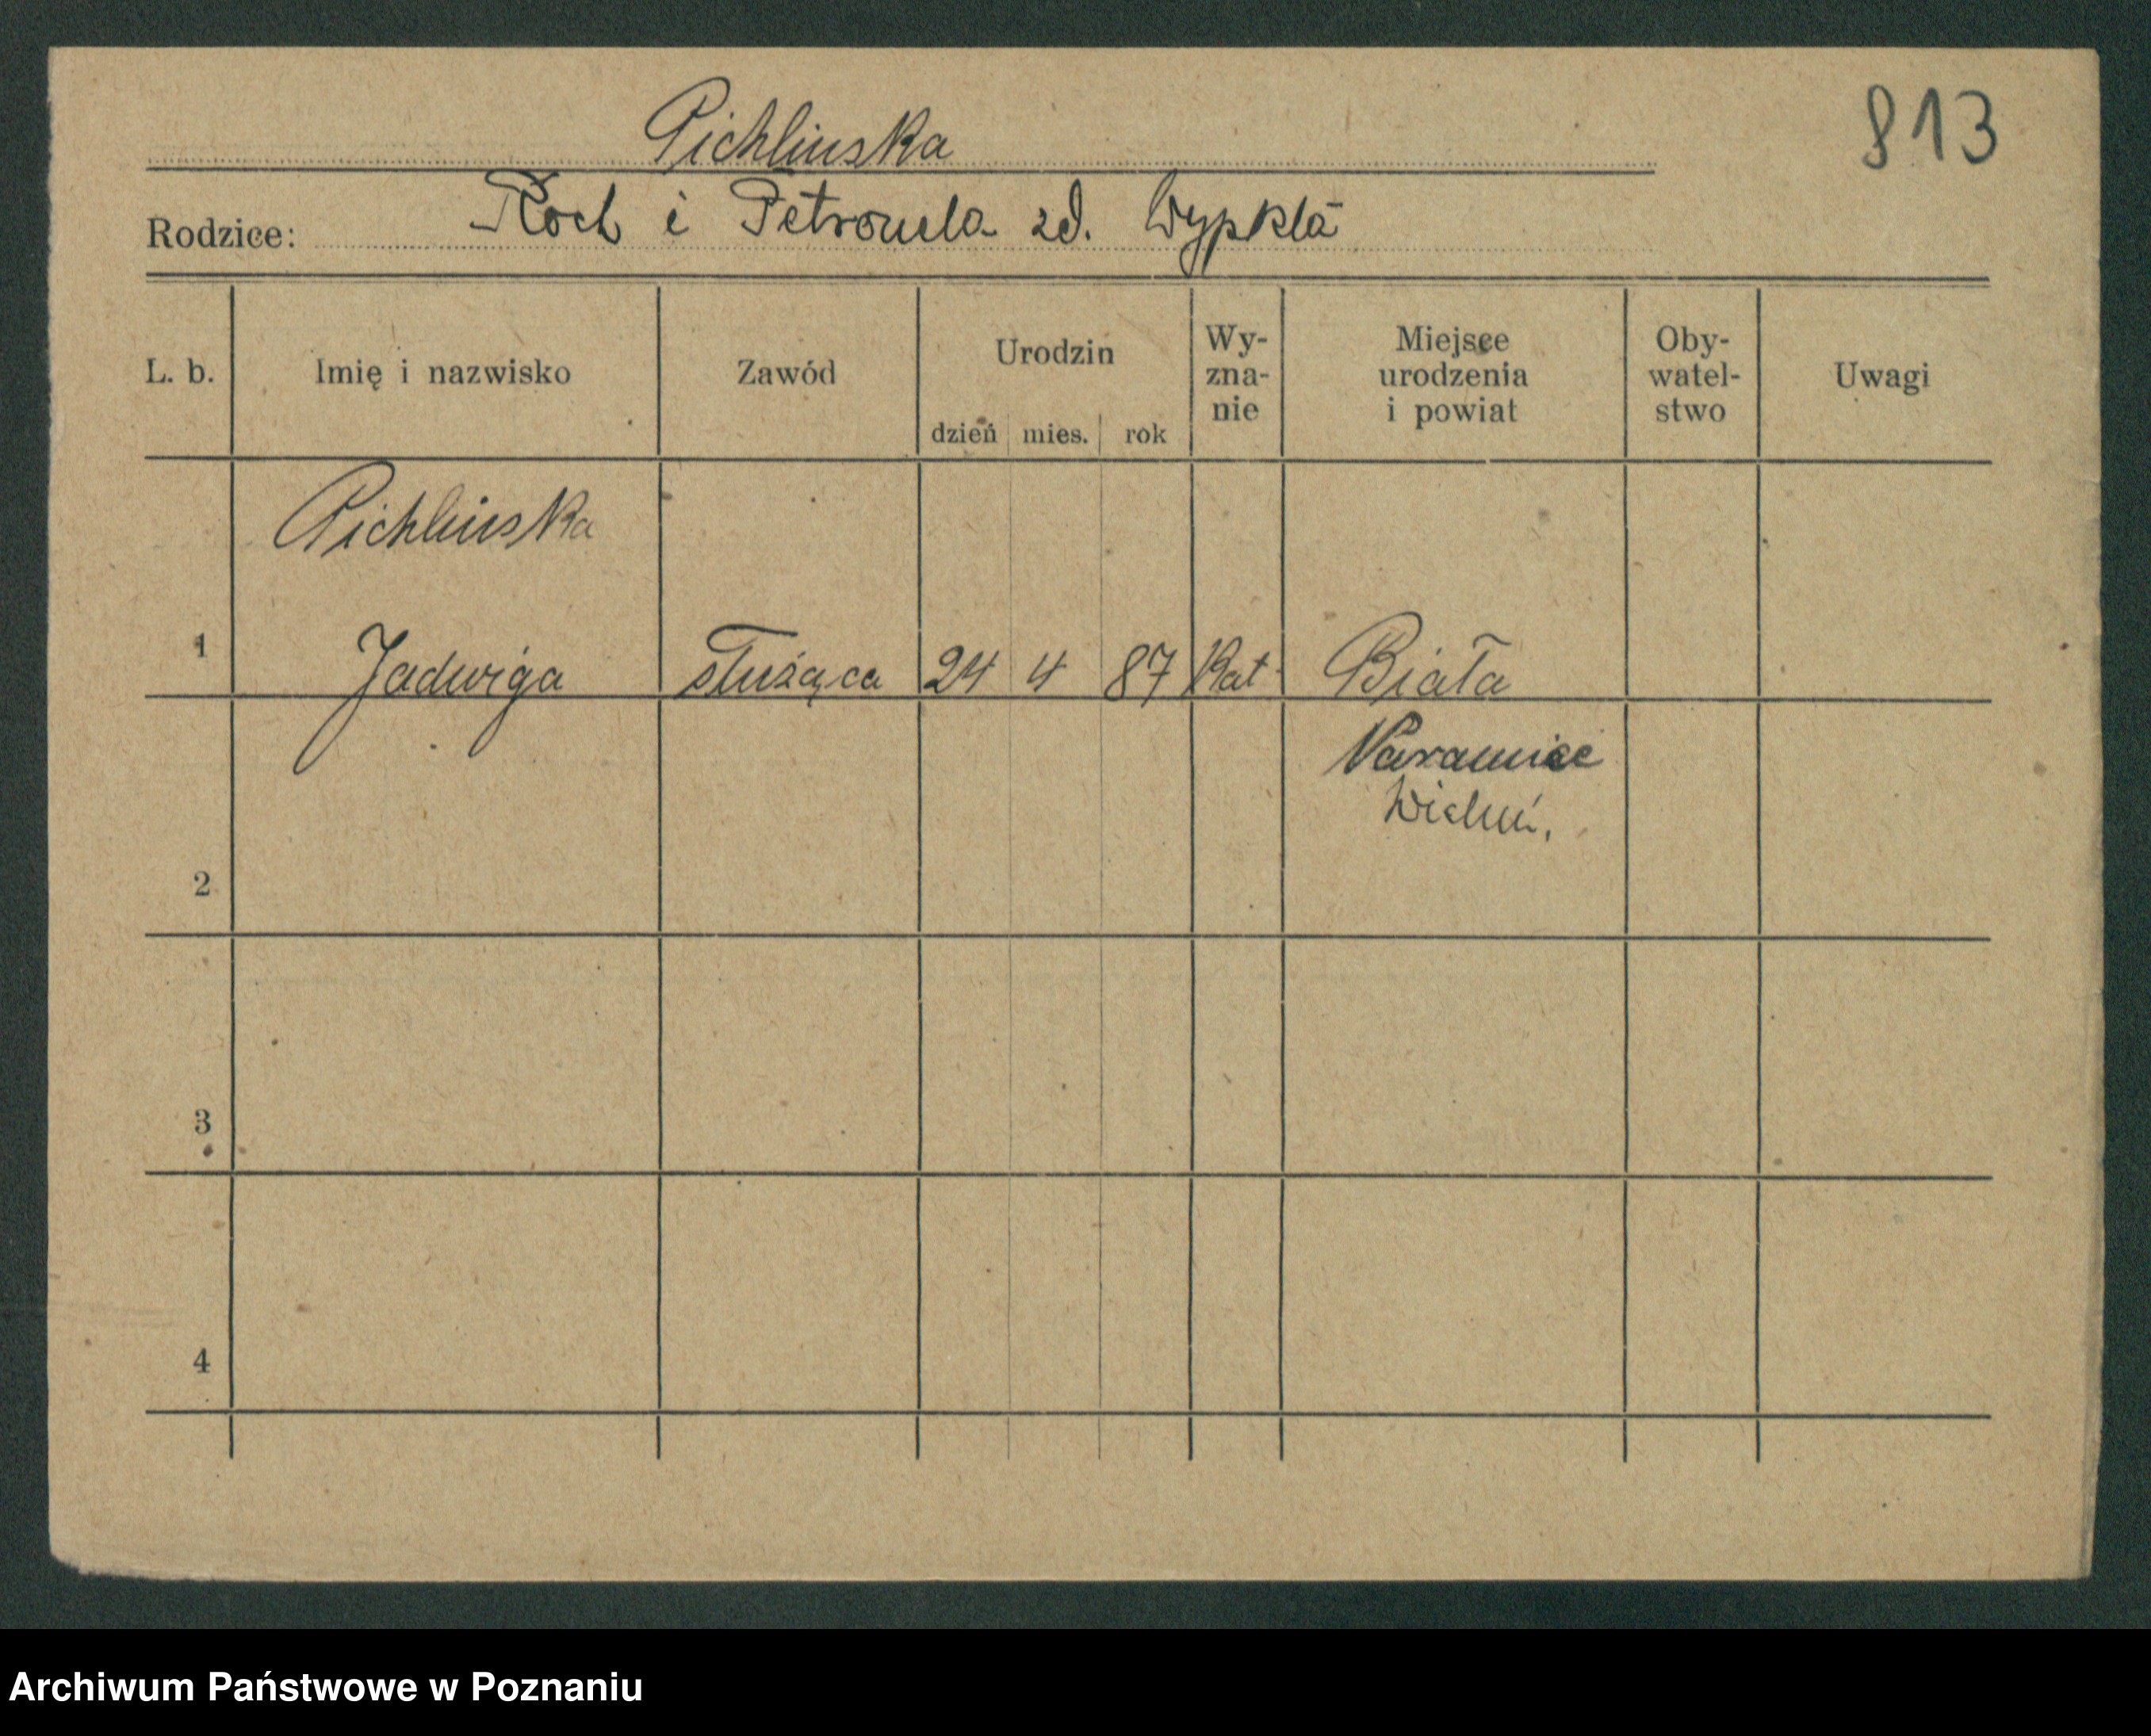 813
Pichlinska
Rodzice: Roch i Petronela zd. Wypkła
L. b. Imię i nazwisko Zawód Urodzin dzień mies. rok Wy- zna- nie Miejsce urodzenia i powiat Oby- watel- stwo Uwagi
Pichlinska
1 Jadwiga służąca 24 4 87 Kat. Biała
Naramice
Wieluń,
2
3
4
Archiwum Państwowe w Poznaniu